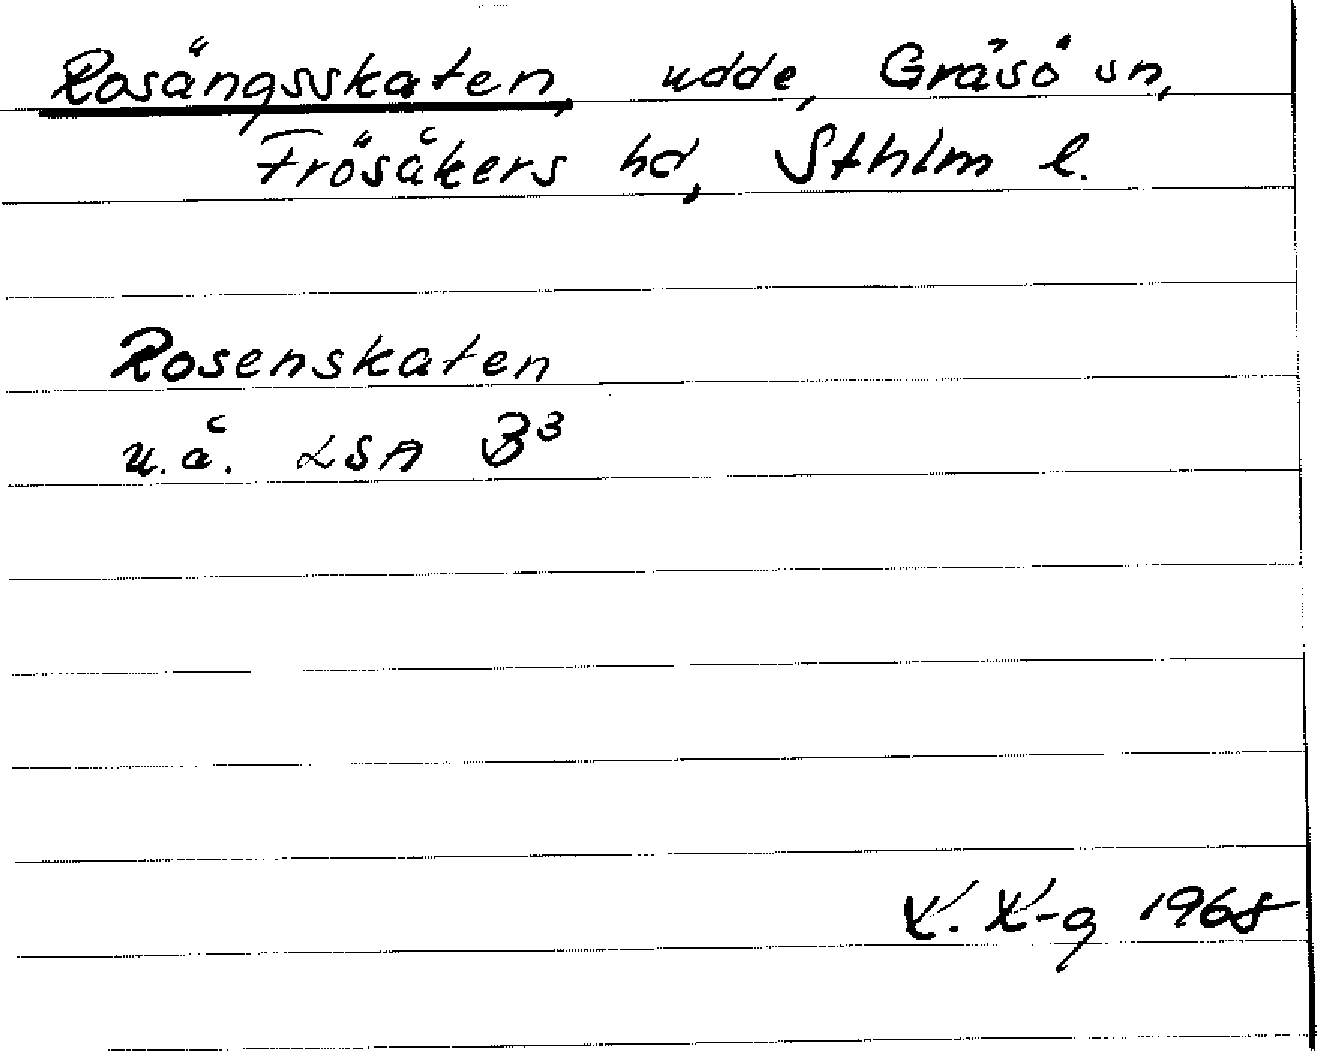 Rosängsskaten, udde, Gräsö sn,
Frösåkers hd, Sthlm l.
Rosenskaten
u.å. LSA B³
K. K-g 1968